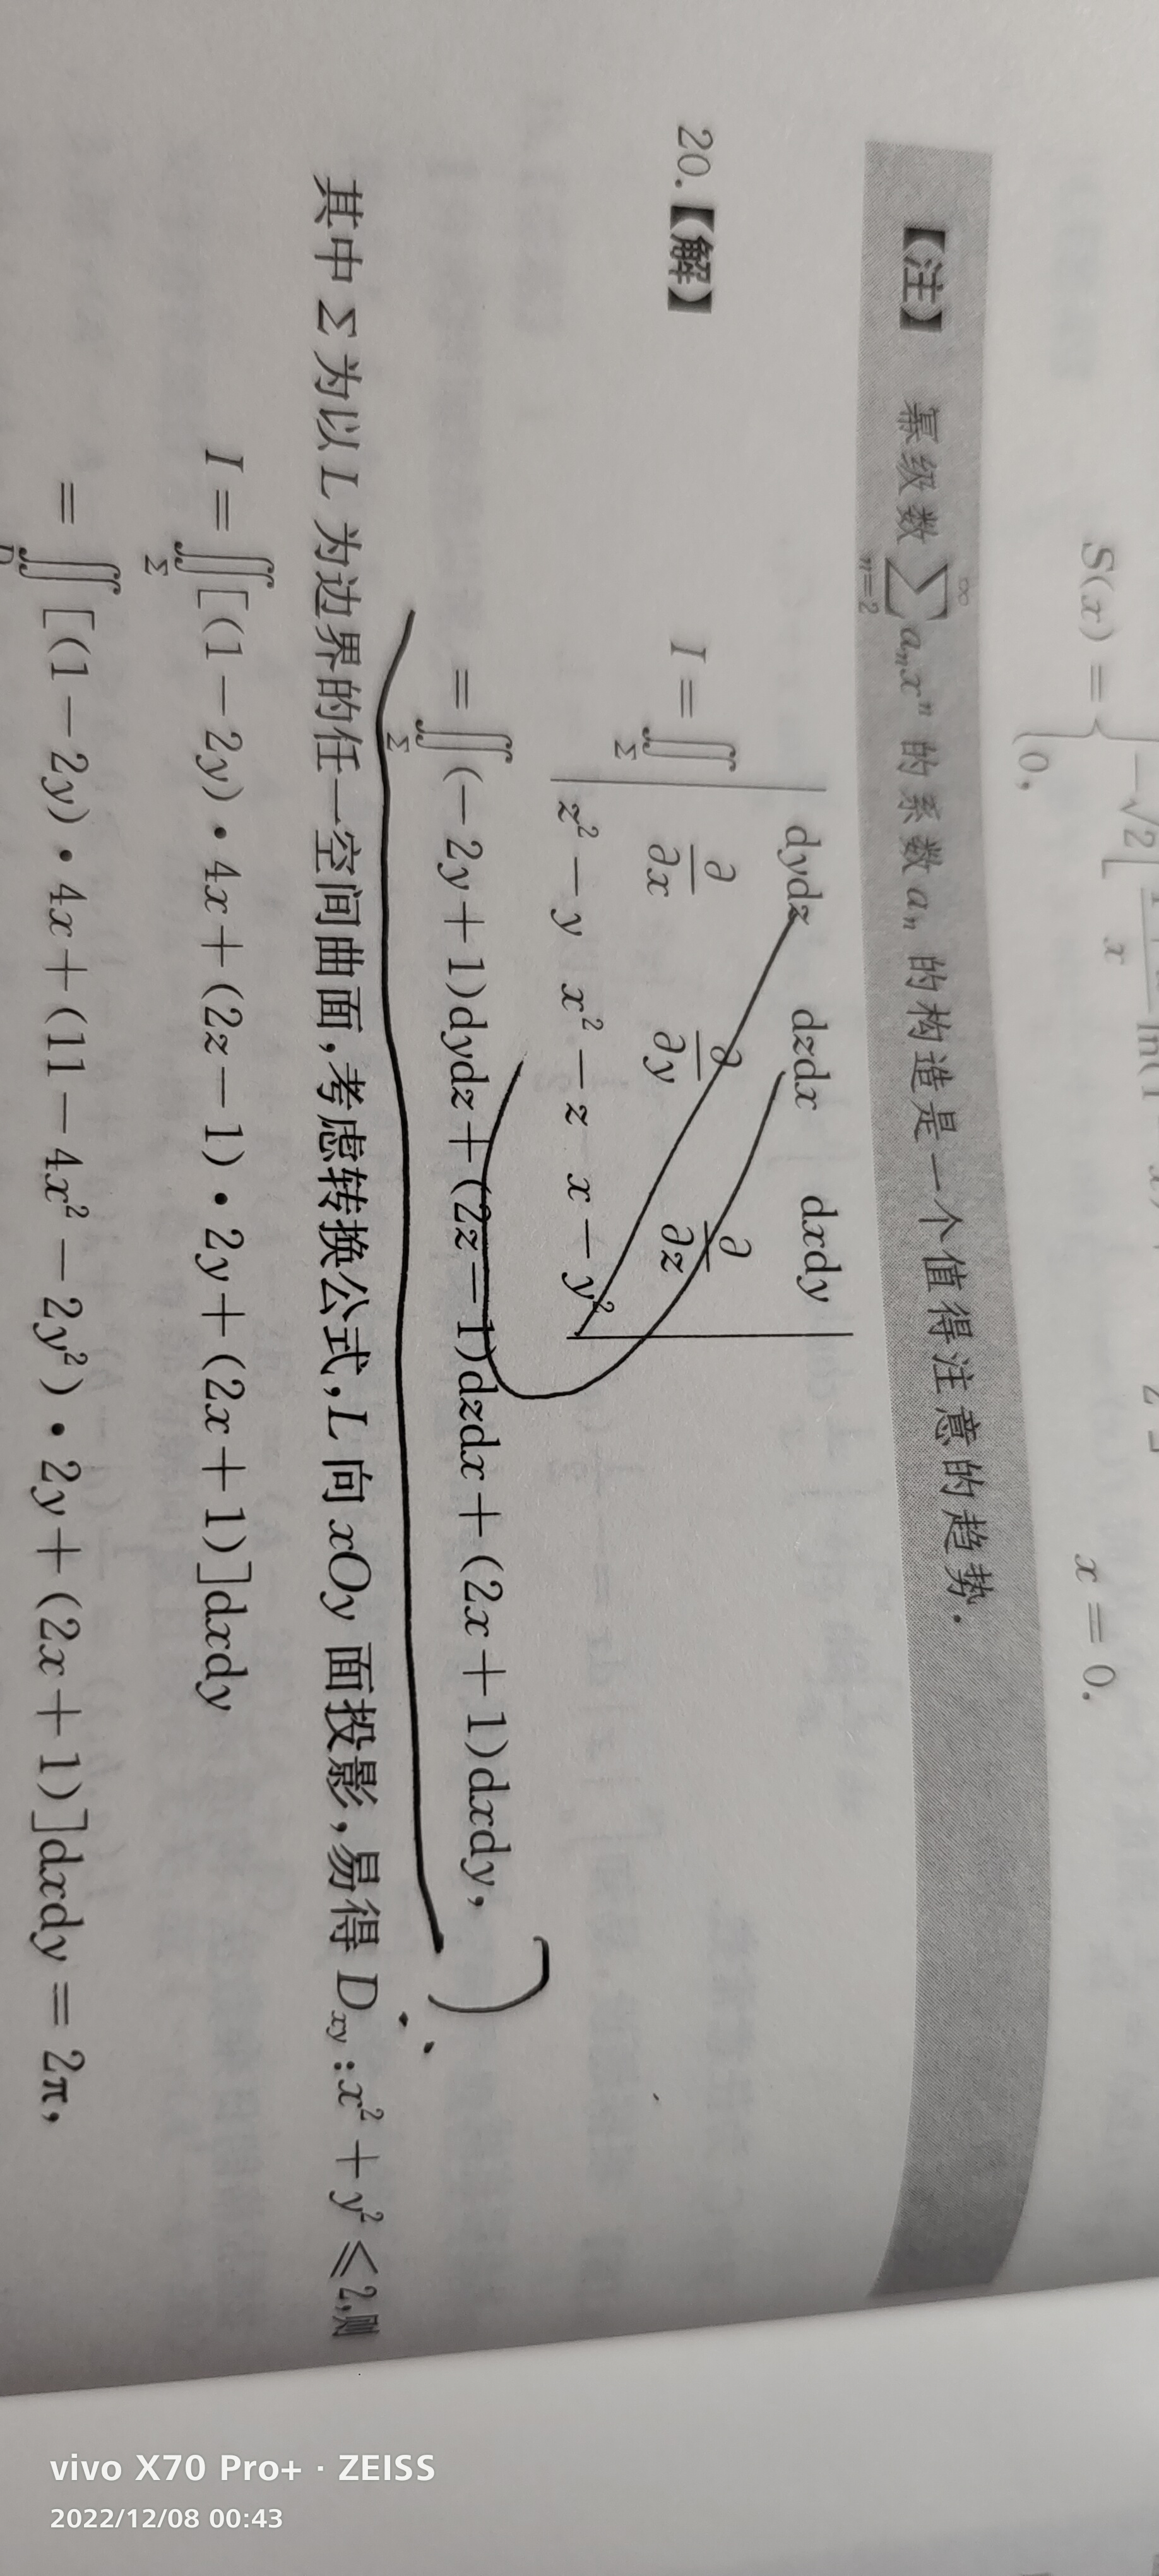 S(x) =
0, x = 0.
【注】 幂级数 ∑ aₙxⁿ 的系数 aₙ 的构造是一个值得注意的趋势.
∞
n=2
dydz dzdx dxdy
20.【解】 I = ∬ | ∂/∂x ∂/∂y ∂/∂z |
Σ
z² − y x² − z x − y²
= ∬ (−2y + 1)dydz + (2z − 1)dzdx + (2x + 1)dxdy,
Σ
其中 Σ 为以 L 为边界的任一空间曲面,考虑转换公式,L 向 xOy 面投影,易得 Dxy : x² + y² ⩽ 2,则
I = ∬ [(1 − 2y) • 4x + (2z − 1) • 2y + (2x + 1)]dxdy
Σ
= ∬ [(1 − 2y) • 4x + (11 − 4x² − 2y²) • 2y + (2x + 1)]dxdy = 2π,
vivo X70 Pro+ · ZEISS
2022/12/08 00:43